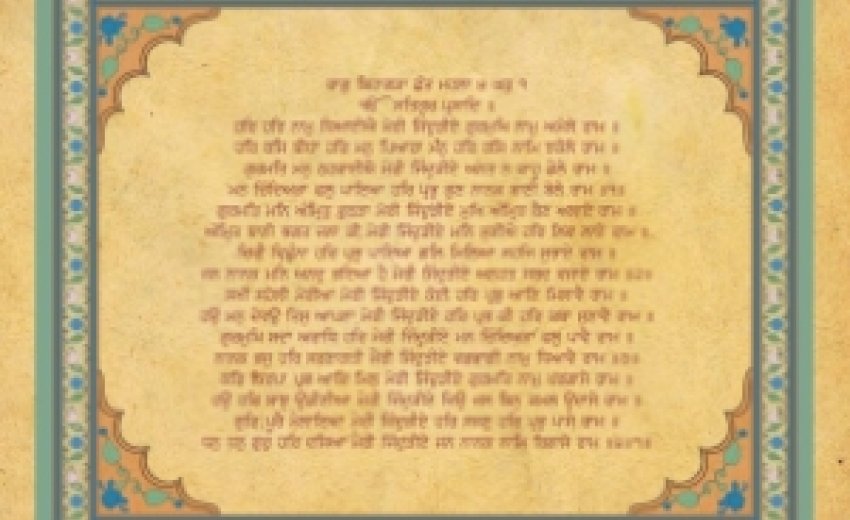 ਰਾਗੁ ਬਿਹਾਗੜਾ ਛੰਤ ਮਹਲਾ ੪ ਘਰੁ ੧
ੴ ਸਤਿਗੁਰ ਪ੍ਰਸਾਦਿ ॥
ਹਰਿ ਹਰਿ ਨਾਮੁ ਧਿਆਈਐ ਮੇਰੀ ਜਿੰਦੁੜੀਏ ਗੁਰਮੁਖਿ ਨਾਮੁ ਅਮੋਲੇ ਰਾਮ ॥
ਹਰਿ ਰਸਿ ਬੀਧਾ ਹਰਿ ਮਨੁ ਪਿਆਰਾ ਮਨੁ ਹਰਿ ਰਸਿ ਨਾਮਿ ਝਕੋਲੇ ਰਾਮ ॥
ਗੁਰਮਤਿ ਮਨੁ ਠਹਰਾਈਐ ਮੇਰੀ ਜਿੰਦੁੜੀਏ ਅਨਤ ਨ ਕਾਹੂ ਡੋਲੇ ਰਾਮ ॥
ਮਨ ਚਿੰਦਿਅੜਾ ਫਲੁ ਪਾਇਆ ਹਰਿ ਪ੍ਰਭੁ ਗੁਣ ਨਾਨਕ ਬਾਣੀ ਬੋਲੇ ਰਾਮ ॥੧॥
ਗੁਰਮਤਿ ਮਨਿ ਅੰਮ੍ਰਿਤੁ ਵੁਠੜਾ ਮੇਰੀ ਜਿੰਦੁੜੀਏ ਮੁਖਿ ਅੰਮ੍ਰਿਤ ਬੈਣ ਅਲਾਏ ਰਾਮ ॥
ਅੰਮ੍ਰਿਤ ਬਾਣੀ ਭਗਤ ਜਨਾ ਕੀ ਮੇਰੀ ਜਿੰਦੁੜੀਏ ਮਨਿ ਸੁਣੀਐ ਹਰਿ ਲਿਵ ਲਾਏ ਰਾਮ ॥
ਚਿਰੀ ਵਿਛੁੰਨਾ ਹਰਿ ਪ੍ਰਭੁ ਪਾਇਆ ਗਲਿ ਮਿਲਿਆ ਸਹਜਿ ਸੁਭਾਏ ਰਾਮ ॥
ਜਨ ਨਾਨਕ ਮਨਿ ਅਨਦੁ ਭਇਆ ਹੈ ਮੇਰੀ ਜਿੰਦੁੜੀਏ ਅਨਹਤ ਸਬਦ ਵਜਾਏ ਰਾਮ ॥੨॥
ਸਖੀ ਸਹੇਲੀ ਮੇਰੀਆ ਮੇਰੀ ਜਿੰਦੁੜੀਏ ਕੋਈ ਹਰਿ ਪ੍ਰਭੁ ਆਣਿ ਮਿਲਾਵੈ ਰਾਮ ॥
ਹਉ ਮਨੁ ਦੇਵਉ ਤਿਸੁ ਆਪਣਾ ਮੇਰੀ ਜਿੰਦੁੜੀਏ ਹਰਿ ਪ੍ਰਭ ਕੀ ਹਰਿ ਕਥਾ ਸੁਣਾਵੈ ਰਾਮ ॥
ਗੁਰਮੁਖਿ ਸਦਾ ਅਰਾਧਿ ਹਰਿ ਮੇਰੀ ਜਿੰਦੁੜੀਏ ਮਨ ਚਿੰਦਿਅੜਾ ਫਲੁ ਪਾਵੈ ਰਾਮ ॥
ਨਾਨਕ ਭਜੁ ਹਰਿ ਸਰਣਾਗਤੀ ਮੇਰੀ ਜਿੰਦੁੜੀਏ ਵਡਭਾਗੀ ਨਾਮੁ ਧਿਆਵੈ ਰਾਮ ॥੩॥
ਕਰਿ ਕਿਰਪਾ ਪ੍ਰਭ ਆਇ ਮਿਲੁ ਮੇਰੀ ਜਿੰਦੁੜੀਏ ਗੁਰਮਤਿ ਨਾਮੁ ਪਰਗਾਸੇ ਰਾਮ ॥
ਹਉ ਹਰਿ ਬਾਝੁ ਉਡੀਣੀਆ ਮੇਰੀ ਜਿੰਦੁੜੀਏ ਜਿਉ ਜਲ ਬਿਨੁ ਕਮਲ ਉਦਾਸੇ ਰਾਮ ॥
ਗੁਰਿ ਪੂਰੈ ਮੇਲਾਇਆ ਮੇਰੀ ਜਿੰਦੁੜੀਏ ਹਰਿ ਸਜਣੁ ਹਰਿ ਪ੍ਰਭੁ ਪਾਸੇ ਰਾਮ ॥
ਧਨੁ ਧਨੁ ਗੁਰੂ ਹਰਿ ਦਸਿਆ ਮੇਰੀ ਜਿੰਦੁੜੀਏ ਜਨ ਨਾਨਕ ਨਾਮਿ ਬਿਗਾਸੇ ਰਾਮ ॥੪॥੧॥